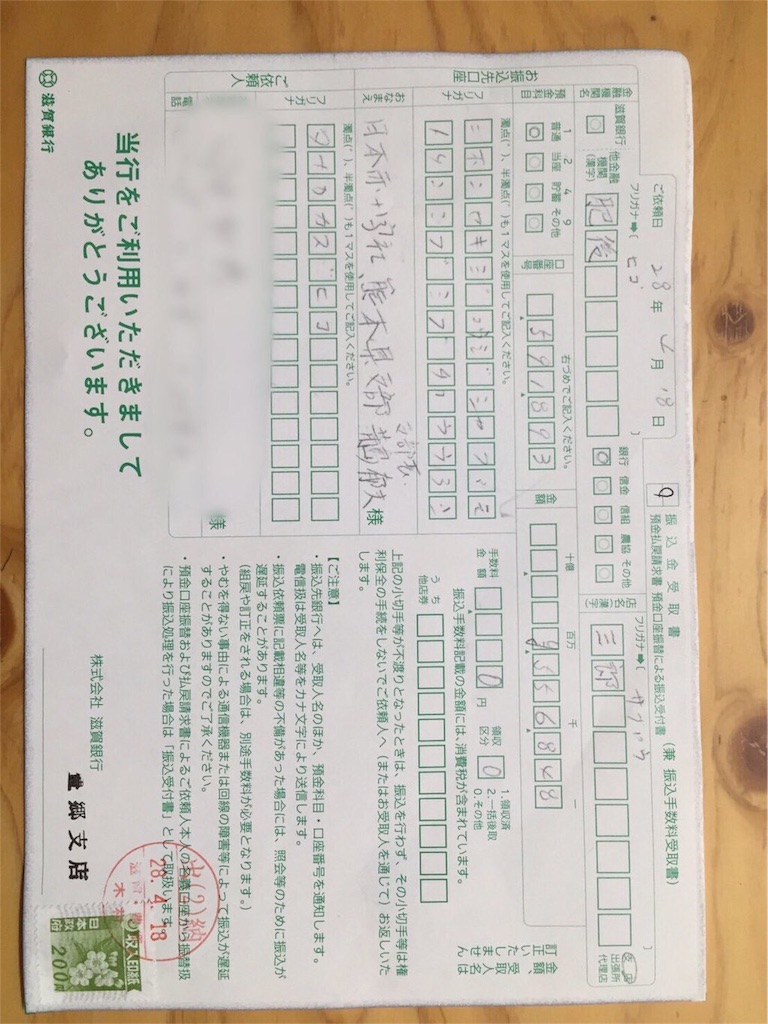 振込金受取書 (兼 振込手数料受取書)
預金払戻請求書・預金口座振替による振込受付書
ご依頼日 28年 4月 18日
金融機関名
滋賀銀行
他金融機関(漢字)
フリガナ→( ヒゴ )
肥後
銀行 信金 信組 農協 その他
店名(漢字)
フリガナ→(
支店 出張所 代理店
預金科目
1 普通
2 当座
4 貯蓄
9 その他
口座番号
右づめでご記入ください。
金額
十億 百万 千 一
9556848
訂正いたしません
金額、受取人名は
お振込先口座
フリガナ
濁点(゛)、半濁点(゜)も1マスを使用してご記入ください。
おなまえ
日本赤十字社 熊本県支部
支部長
様
手数料金額
0 円
領収区分
0
1.領収済
2.一括後取
0.その他
振込手数料記載の金額には、消費税が含まれています。
うち他店券
上記の小切手等が不渡りとなったときは、振込を行わず、その小切手等は権
利保全の手続をしないでご依頼人へ(またはお受取人を通じて)お返しいた
します。
ご依頼人
フリガナ
濁点(゛)、半濁点(゜)も1マスを使用してご記入ください。
様
電話
【ご注意】
・振込先銀行へは、受取人名のほか、預金科目・口座番号を通知します。
電信扱は受取人名等をカナ文字により送信します。
・振込依頼票に記載相違等の不備があった場合には、照会等のために振込が
遅延することがあります。
(組戻や訂正をされる場合は、別途手数料が必要となります。)
・やむを得ない事由による通信機器または回線の障害等によって振込が遅延
することがありますのでご了承ください。
・預金口座振替および払戻請求書によるご依頼人本人の名義口座から振替扱
により振込処理を行った場合は「振込受付書」として取扱います。
当行をご利用いただきまして
ありがとうございます。
滋賀銀行
株式会社 滋賀銀行
豊郷支店
28.4.18
収入印紙
日本政府
200円